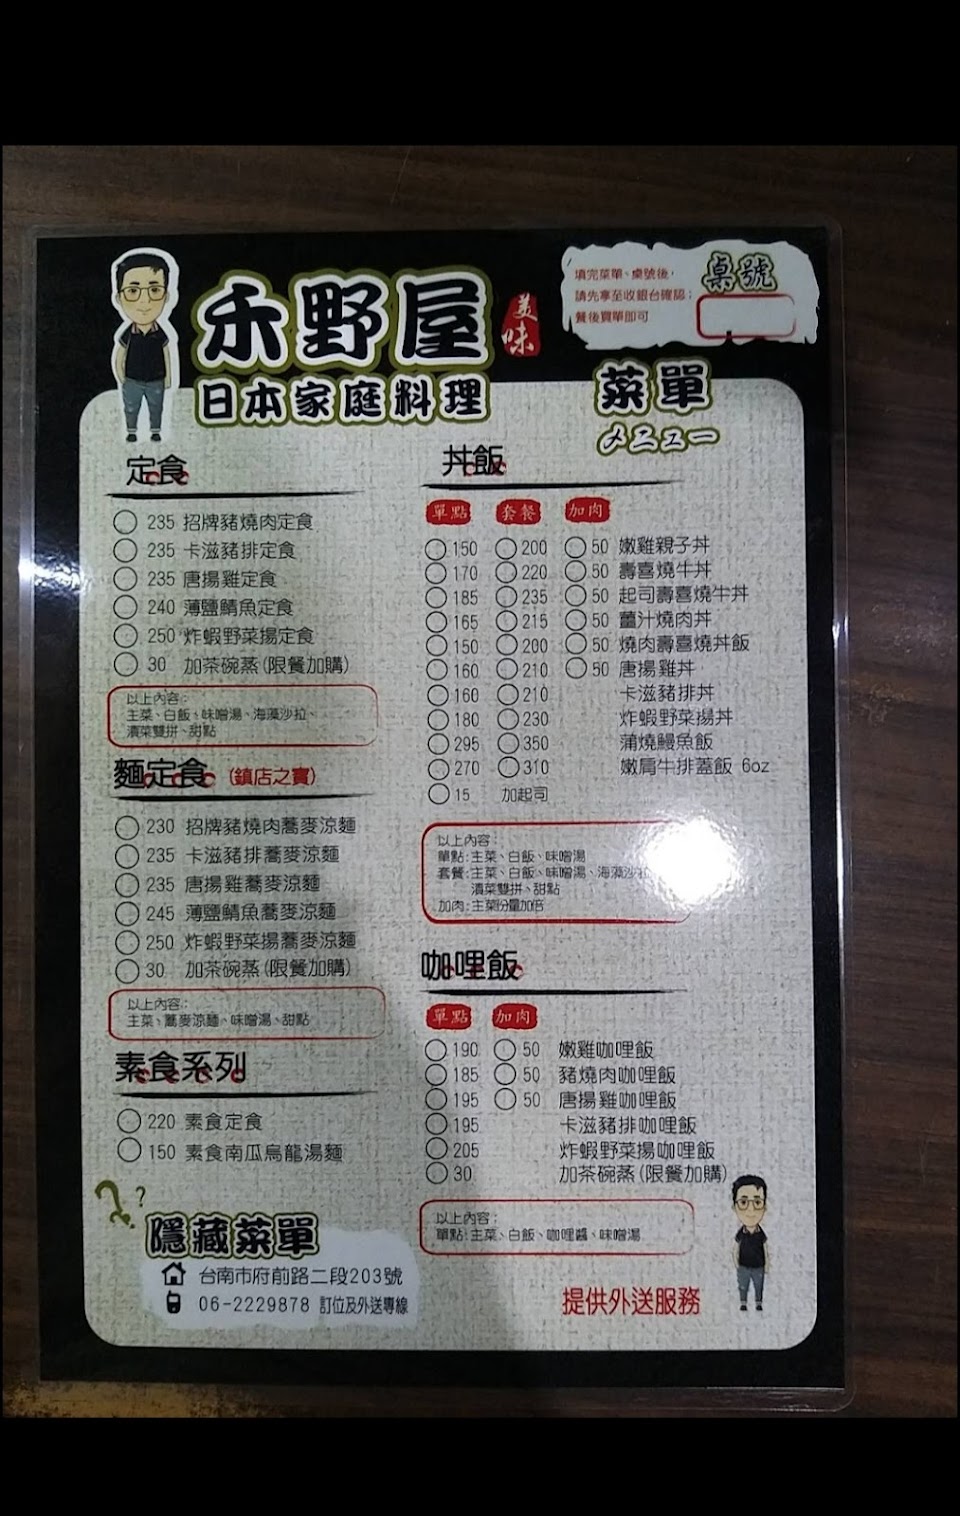 禾野屋
美味
日本家庭料理
填完菜單、桌號後，
請先拿至收銀台確認；
餐後買單即可
桌號
菜單
メニュー
定食
235 招牌豬燒肉定食
235 卡滋豬排定食
235 唐揚雞定食
240 薄鹽鯖魚定食
250 炸蝦野菜揚定食
30 加茶碗蒸(限餐加購)
以上內容：
主菜、白飯、味噌湯、海藻沙拉、
漬菜雙拼、甜點
麵定食 (鎮店之寶)
230 招牌豬燒肉蕎麥涼麵
235 卡滋豬排蕎麥涼麵
235 唐揚雞蕎麥涼麵
245 薄鹽鯖魚蕎麥涼麵
250 炸蝦野菜揚蕎麥涼麵
30 加茶碗蒸(限餐加購)
以上內容：
主菜、蕎麥涼麵、味噌湯、甜點
素食系列
220 素食定食
150 素食南瓜烏龍湯麵
??
隱藏菜單
台南市府前路二段203號
06-2229878 訂位及外送專線
丼飯
單點 套餐 加肉
150 200 50 嫩雞親子丼
170 220 50 壽喜燒牛丼
185 235 50 起司壽喜燒牛丼
165 215 50 薑汁燒肉丼
150 200 50 燒肉壽喜燒丼飯
160 210 50 唐揚雞丼
160 210 卡滋豬排丼
180 230 炸蝦野菜揚丼
295 350 蒲燒鰻魚飯
270 310 嫩肩牛排蓋飯 6oz
15 加起司
以上內容：
單點:主菜、白飯、味噌湯
套餐:主菜、白飯、味噌湯、海藻沙拉
漬菜雙拼、甜點
加肉:主菜份量加倍
咖哩飯
單點 加肉
190 50 嫩雞咖哩飯
185 50 豬燒肉咖哩飯
195 50 唐揚雞咖哩飯
195 卡滋豬排咖哩飯
205 炸蝦野菜揚咖哩飯
30 加茶碗蒸(限餐加購)
以上內容：
單點:主菜、白飯、咖哩醬、味噌湯
提供外送服務